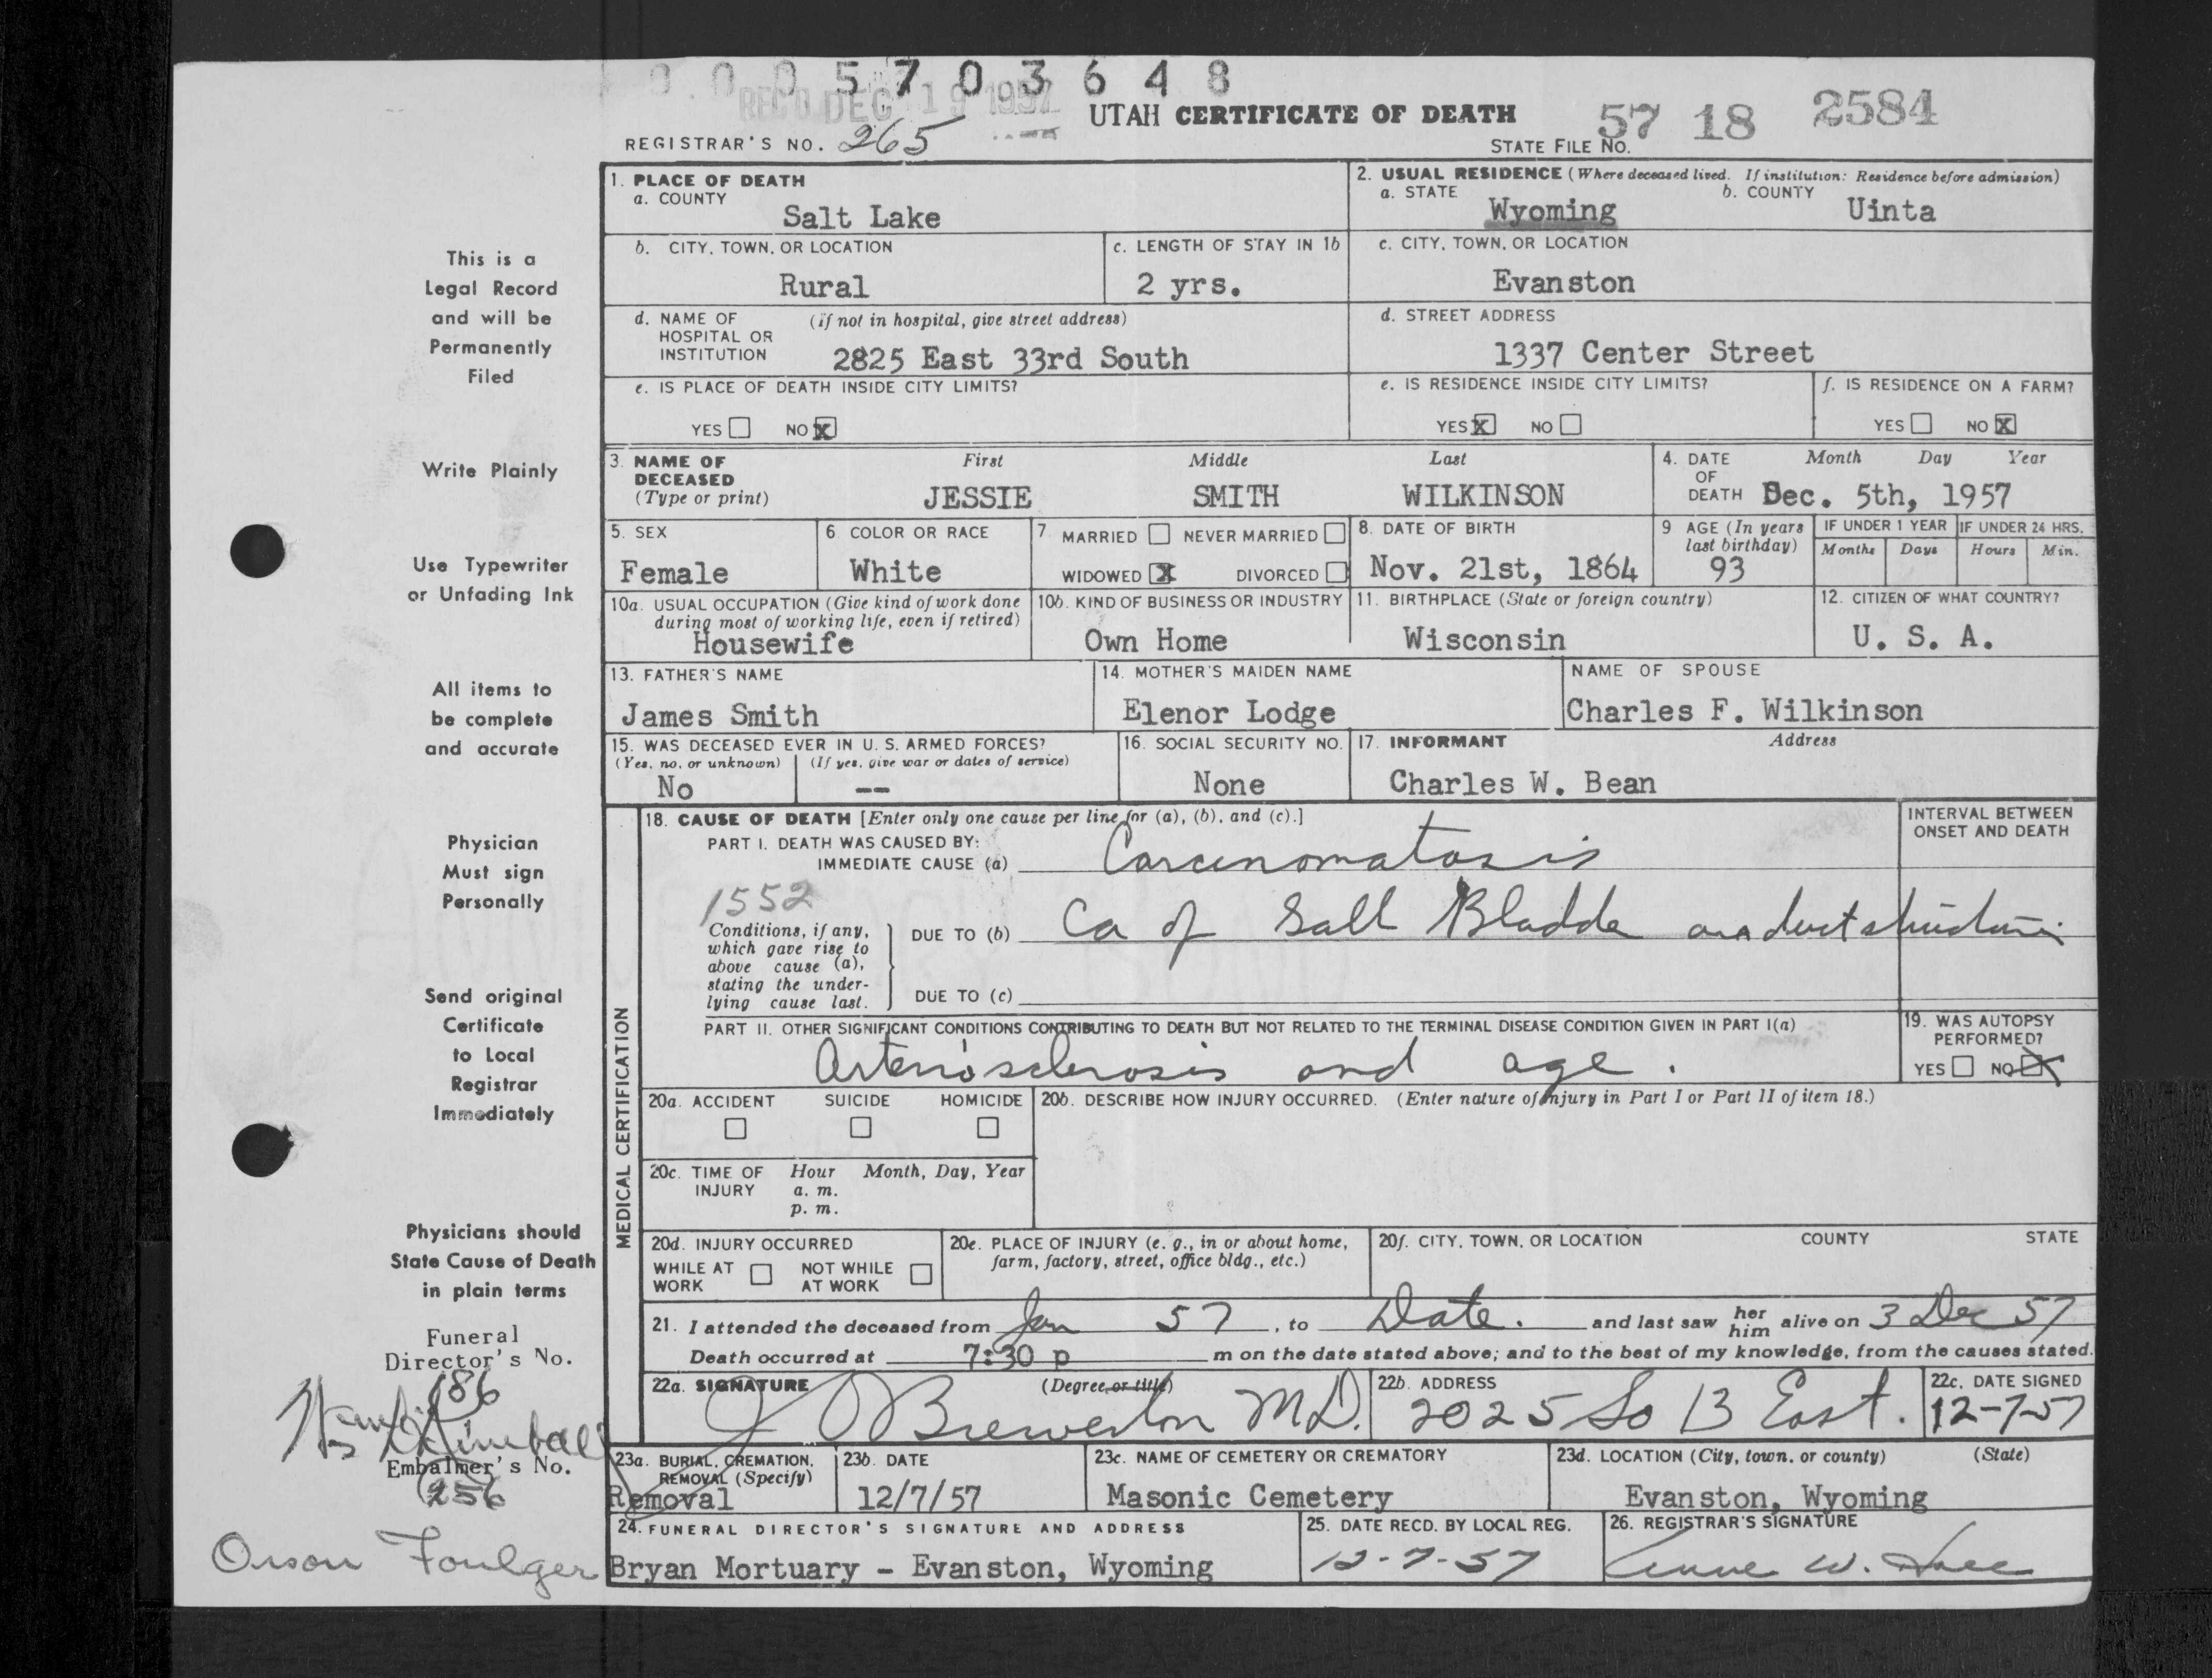 0 0 0 5 7 0 3 6 4 8
REC'D DEC 19 1957
UTAH CERTIFICATE OF DEATH
57 18 2584
REGISTRAR'S NO. 265
STATE FILE NO.
1. PLACE OF DEATH
a. COUNTY
Salt Lake
2. USUAL RESIDENCE (Where deceased lived. If institution: Residence before admission)
a. STATE
Wyoming
b. COUNTY
Uinta
b. CITY, TOWN, OR LOCATION
Rural
c. LENGTH OF STAY IN 1b
2 yrs.
c. CITY, TOWN, OR LOCATION
Evanston
d. NAME OF HOSPITAL OR INSTITUTION
(if not in hospital, give street address)
2825 East 33rd South
d. STREET ADDRESS
1337 Center Street
e. IS PLACE OF DEATH INSIDE CITY LIMITS?
YES NO X
e. IS RESIDENCE INSIDE CITY LIMITS?
YES X NO
f. IS RESIDENCE ON A FARM?
YES NO X
3. NAME OF DECEASED
(Type or print)
First Middle Last
JESSIE SMITH WILKINSON
4. DATE OF DEATH
Month Day Year
Dec. 5th, 1957
5. SEX
Female
6 COLOR OR RACE
White
7 MARRIED NEVER MARRIED
WIDOWED X DIVORCED
8. DATE OF BIRTH
Nov. 21st, 1864
9 AGE (In years last birthday)
93
IF UNDER 1 YEAR
Months Days
IF UNDER 24 HRS.
Hours Min.
10a. USUAL OCCUPATION (Give kind of work done during most of working life, even if retired)
Housewife
10b. KIND OF BUSINESS OR INDUSTRY
Own Home
11. BIRTHPLACE (State or foreign country)
Wisconsin
12. CITIZEN OF WHAT COUNTRY?
U. S. A.
13. FATHER'S NAME
James Smith
14. MOTHER'S MAIDEN NAME
Elenor Lodge
NAME OF SPOUSE
Charles F. Wilkinson
15. WAS DECEASED EVER IN U. S. ARMED FORCES?
(Yes, no, or unknown) (If yes, give war or dates of service)
No --
16. SOCIAL SECURITY NO.
None
17. INFORMANT Address
Charles W. Bean
MEDICAL CERTIFICATION
18. CAUSE OF DEATH [Enter only one cause per line for (a), (b), and (c).]
INTERVAL BETWEEN ONSET AND DEATH
PART I. DEATH WAS CAUSED BY:
IMMEDIATE CAUSE (a) Carcinomatosis
1552
Conditions, if any, which gave rise to above cause (a), stating the underlying cause last.
DUE TO (b) Ca of Gall Bladde and duct
DUE TO (c)
PART II. OTHER SIGNIFICANT CONDITIONS CONTRIBUTING TO DEATH BUT NOT RELATED TO THE TERMINAL DISEASE CONDITION GIVEN IN PART I(a)
Arteriosclerosis and age.
19. WAS AUTOPSY PERFORMED?
YES NO X
20a. ACCIDENT SUICIDE HOMICIDE
20b. DESCRIBE HOW INJURY OCCURRED. (Enter nature of injury in Part I or Part II of item 18.)
20c. TIME OF INJURY
Hour Month, Day, Year
a. m.
p. m.
20d. INJURY OCCURRED
WHILE AT WORK NOT WHILE AT WORK
20e. PLACE OF INJURY (e. g., in or about home, farm, factory, street, office bldg., etc.)
20f. CITY, TOWN, OR LOCATION COUNTY STATE
21. I attended the deceased from Jan 57, to Date. and last saw her him alive on 3 Dec 57
Death occurred at 7:30 p m on the date stated above; and to the best of my knowledge, from the causes stated.
22a. SIGNATURE (Degree or title)
J Brewerton M.D.
22b. ADDRESS
2025 So 13 East.
22c. DATE SIGNED
12-7-57
23a. BURIAL, CREMATION, REMOVAL (Specify)
Removal
23b. DATE
12/7/57
23c. NAME OF CEMETERY OR CREMATORY
Masonic Cemetery
23d. LOCATION (City, town, or county) (State)
Evanston, Wyoming
24. FUNERAL DIRECTOR'S SIGNATURE AND ADDRESS
Bryan Mortuary - Evanston, Wyoming
25. DATE RECD. BY LOCAL REG.
12-7-57
26. REGISTRAR'S SIGNATURE
W.
This is a
Legal Record
and will be
Permanently
Filed
Write Plainly
Use Typewriter
or Unfading Ink
All items to
be complete
and accurate
Physician
Must sign
Personally
Send original
Certificate
to Local
Registrar
Immediately
Physicians should
State Cause of Death
in plain terms
Funeral
Director's No.
186
Kimball
Embalmer's No.
256
Orson Foulger